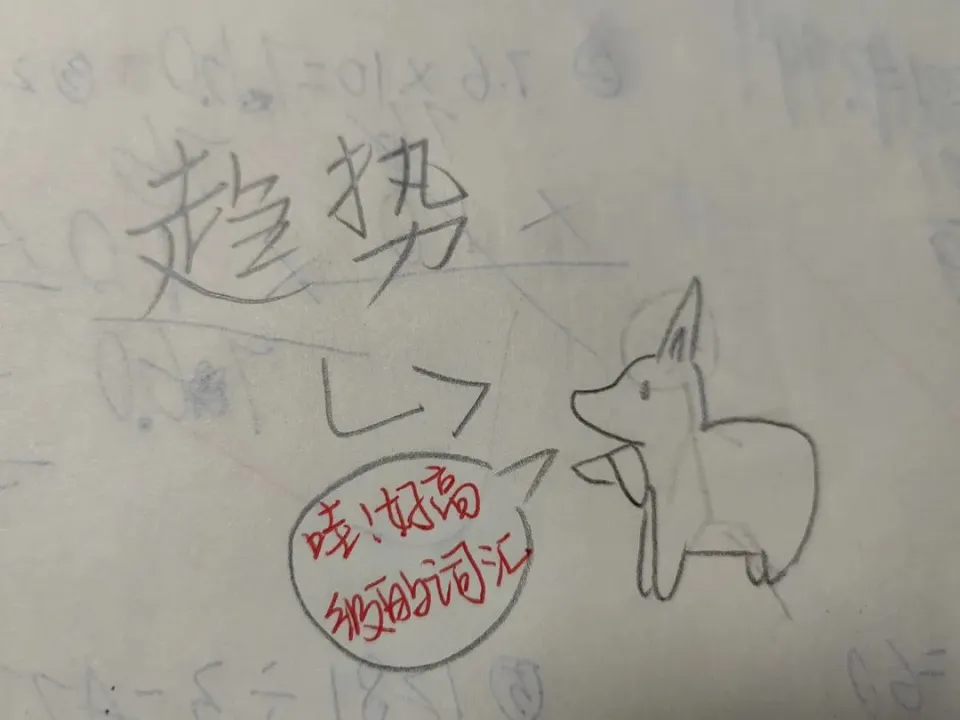 趋势
哇!好高
级的词汇